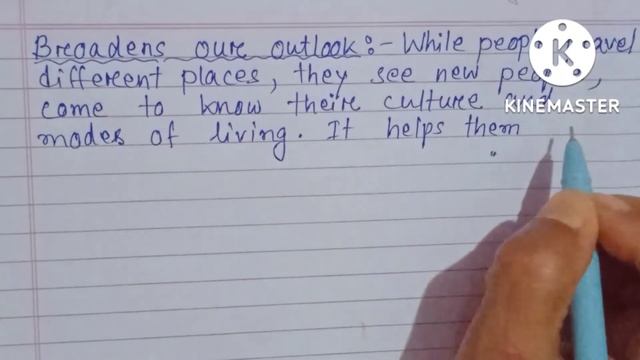 Breoadens oure outlook :- While people travel
different places, they see new people,
come to know theire culture and
modes of living. It helps them
KINEMASTER